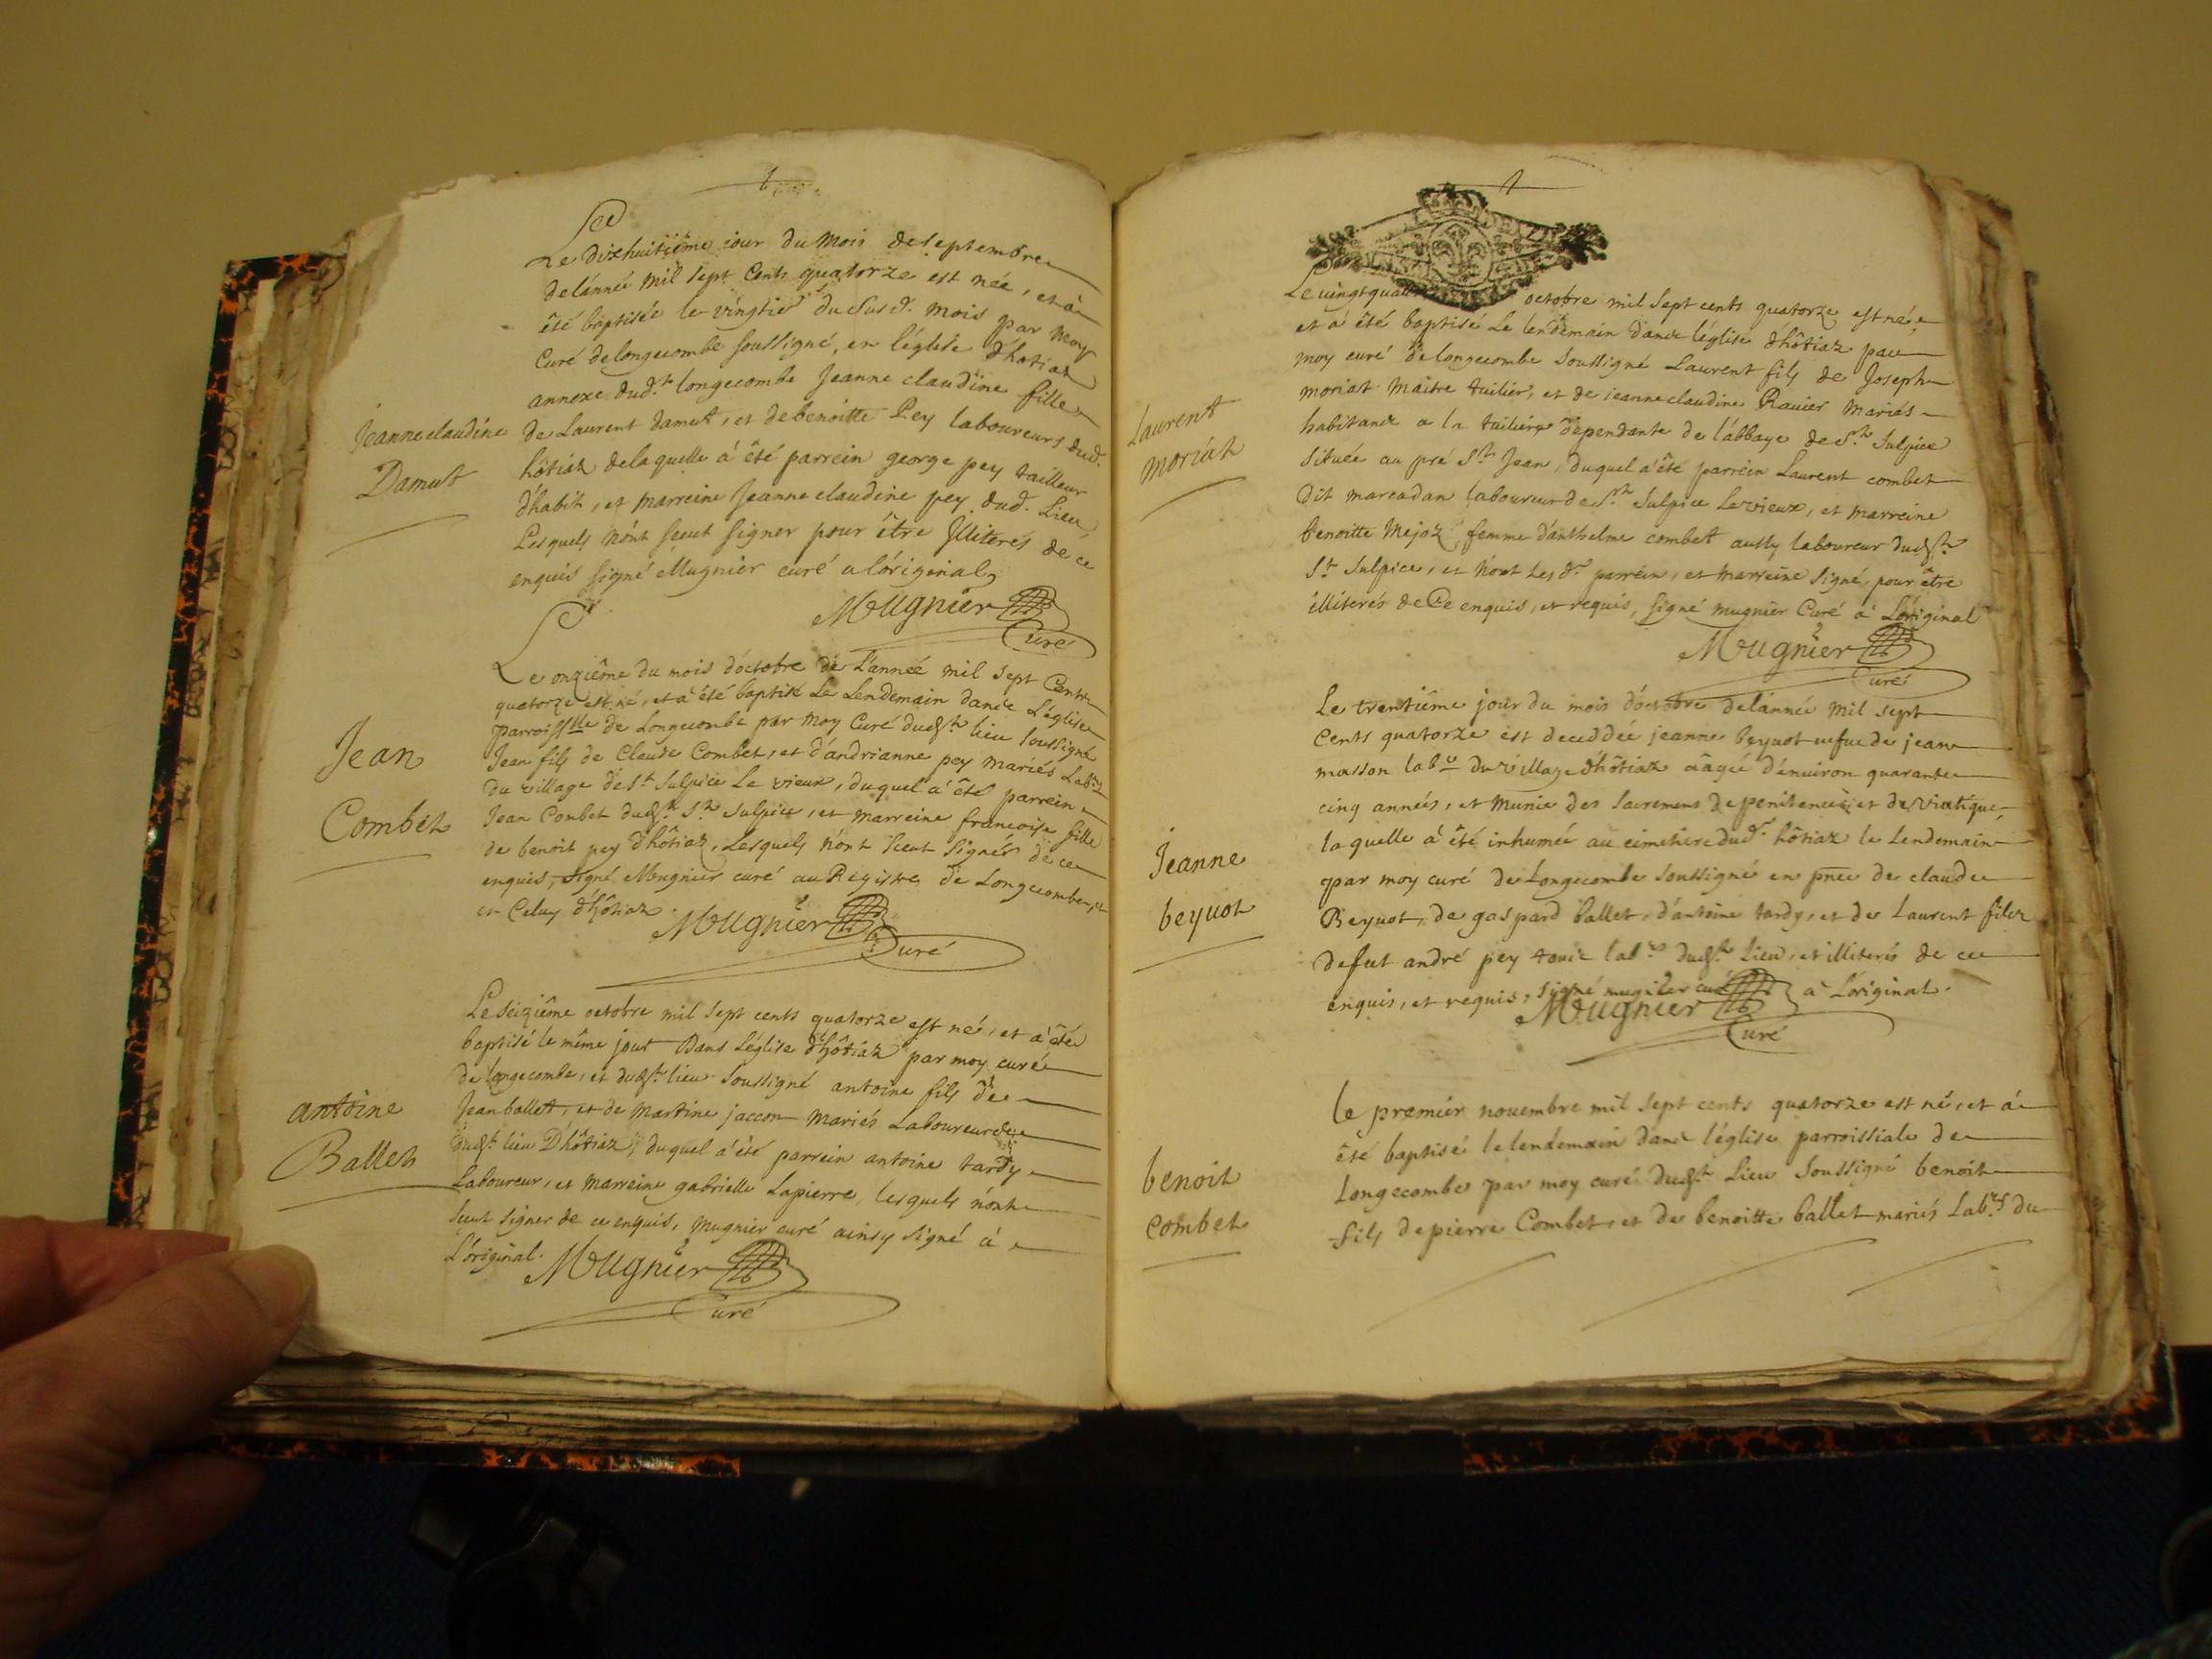 Le dixhuitiême jour du mois de septembre
de lánneé mil sept Cents quatorze est née, et à
êté baptisée le vingtie du susd. mois par moy
Curé de longecombe soussigné, en léglise dhotiaz
annexe dud.t longecombe Jeanne claudine fille
Jeanne claudine
Damet
de Laurent damet, et de benoitte Pey laboureurs dud.
hôtiaz de laquelle á êté parrein george pey tailleur
dhabit, et marreine Jeanne claudine pey dud. Lieu
Lesquels nónt sceut signer pour être Jlliterés de ce
enquis signé Mugnier curé a lóriginal,
Mugnier
Curé
Le onziême du mois dóctobre de L'anneé mil sept Cents
quatorze est né, et à êté baptisé Le Lendemain dans L'église
parroisslle de Longecombe par moy Curé dudt lieu soussigné
Jean
Combet
Jean fils de Claude Combet, et d'andrianne pey mariés Labrs
du village de St Sulpice Le vieux, duquel á êté parrein
Jean Combet dudt St Sulpice, et marreine francoise fille
de benoit pey dhôtiaz, Lesquels nónt sceut signér de ce
enquis, signé Mugnier curé au Registre de Longecombe, et
et Celuy dhôtiaz.
Mugnier
Curé
Le seiziême octobre mil sept cents quatorze est né, et a êté
baptisé le même jour Dans L'église d'hôtiaz par moy curé
de longecombe, et dudt lieu soussigné antoine fils de
antoine
Ballet
Jean ballet, et de Martine jaccon mariés Laboureurs
dudt lieu D'hôtiaz, duquel á êté parrein antoine tardy
Laboureur, et marreine gabrielle Lapierre, lesquels n'ónt
sceut signer de ce enquis, mugnier curé ainsy signé á
L'óriginal.
Mugnier
Curé
Le vingt quatre octobre mil sept cents quatorze est né
et á êté baptisé Le lendemain dans léglise dhôtiaz par
moy curé de longecombe soussigné Laurent fils de Joseph
Laurent
moriat
moriat maitre tuilier, et de jeanne claudine Ravier mariés
habitands a la tuiliere dépendante de l'ábbaye de St Sulpice
située au pré St Jean, duquel á êté parrein Laurent combet
Dit marcadan laboureur de St Sulpice Le vieux, et marreine
benoitte Mejoz femme d'anthelme combet aussy laboureur dudt
St Sulpice, et nónt Les dt parrein, et marreine signé, pour être
illiterés de Ce enquis, et requis, signé mugnier Curé á Lóriginal
Mugnier
Curé
Le trentiême jour du mois dóctobre de lánneé mil sept
Cents quatorze est deceddée jeanne beyuot uefue de jean
masson labr du village dhôtiaz aâgeé d'énuiron quarante
cinq annés, et munie des sacremens de penitence, et de viatique,
Jeanne
beyuot
laquelle á êté inhumée au cimetiere dud.t hôtiaz le Lendemain
par moy curé de Longecombe soussigné en pnce de claude
Beyuot, de gaspard ballet, d'ántoine tardy, et de Laurent fils
de fut andré pey tous labrs dudt Lieu, et illiterés de ce
enquis, et requis, signé mugnier curé á Lóriginal.
Mugnier
Curé
le premiér nouembre mil sept cents quatorze est né, et á
êté baptisé le lendemain dans léglise parroissiale de
benoit
combet
Longecombe par moy curé dudt Lieu soussigné benoit
fils de pierre Combet, et de benoitte ballet mariés Labrs du